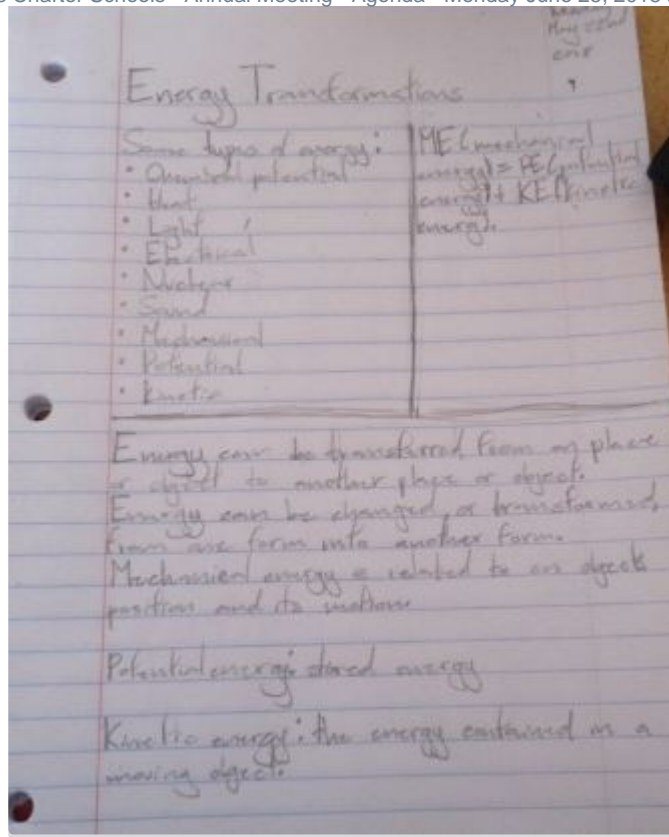 Charter Schools - Annual Meeting - Agenda - Monday June 25, 2018
May 22nd
Energy Transformations
Some types of energy:
• Chemical potential
• Heat
• Light
• Electrical
• Nuclear
• Sound
• Mechanical
• Potential
• Kinetic
ME (mechanical
energy) = PE (potential
energy) + KE (kinetic
energy).
Energy can be transferred from on place
or object to another place or object.
Energy can be changed, or transformed,
from one form into another form.
Mechanical energy is related to an objects
position and its motion.
Potential energy: stored energy
Kinetic energy: the energy contained in a
moving object.